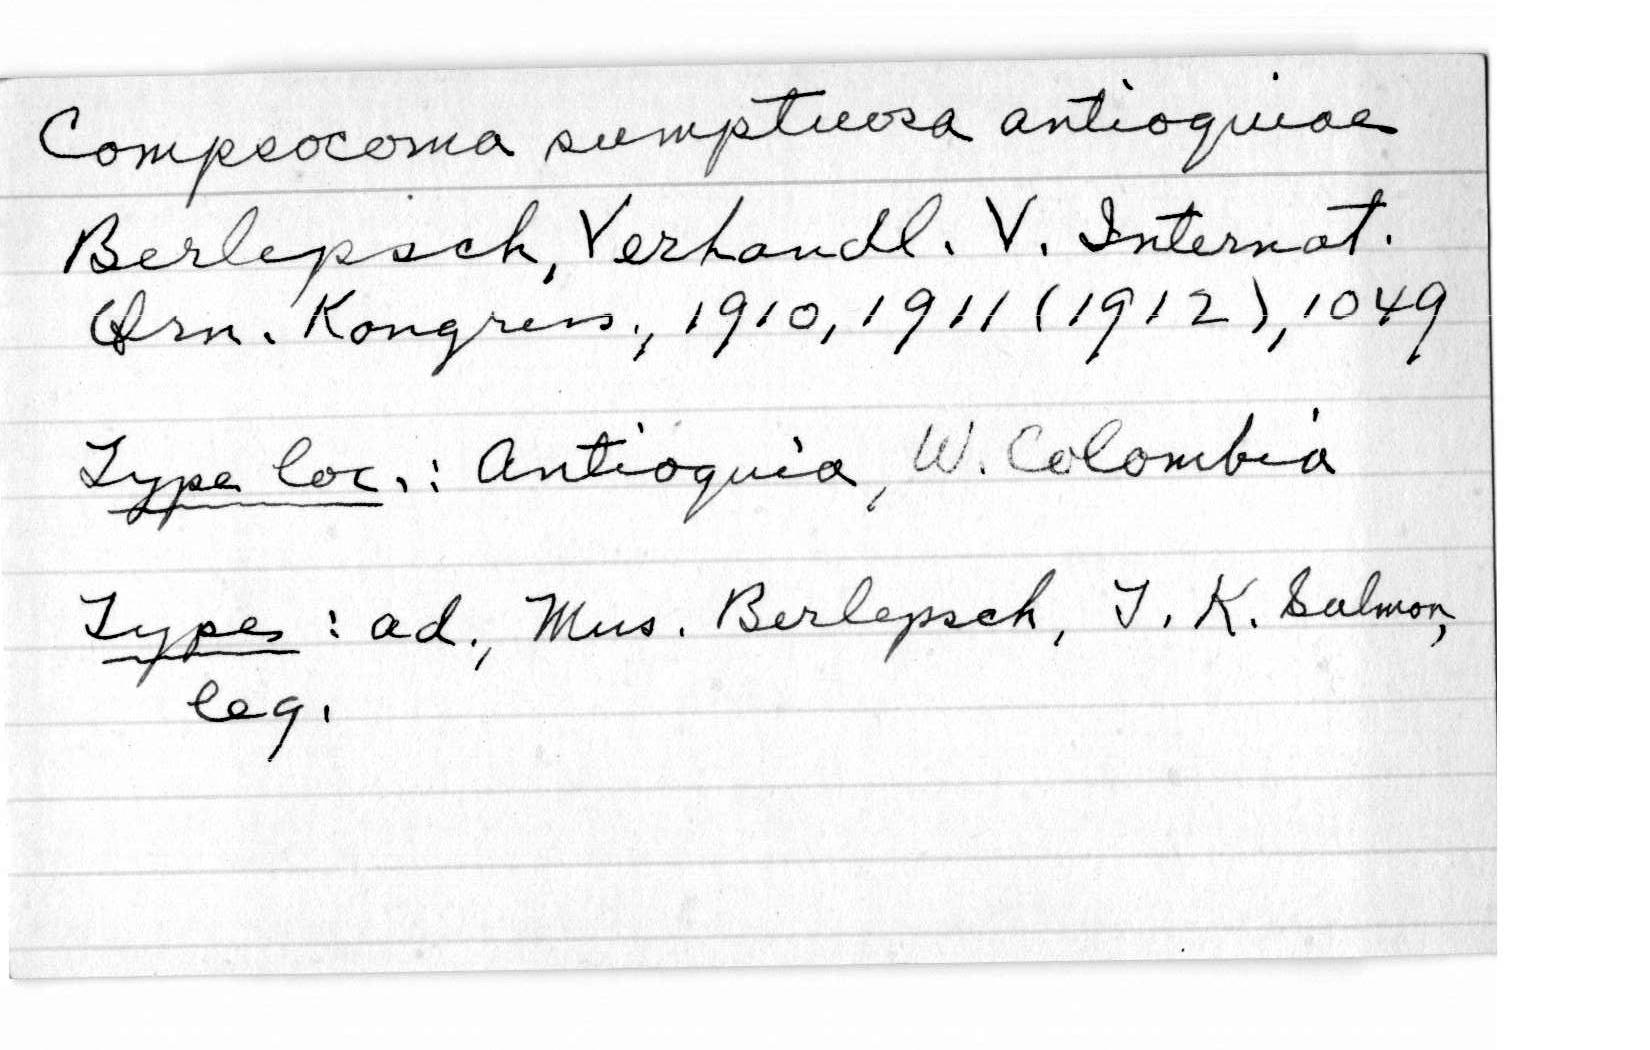 Compsocoma sumptuosa antioquiae
Berlepsch, Verhandl. V. Internat.
Orn. Kongress., 1910, 1911 (1912), 1049
Type loc.: Antioquia, W. Colombia
Types: ad., Mus. Berlepsch, T. K. Salmon,
leg.